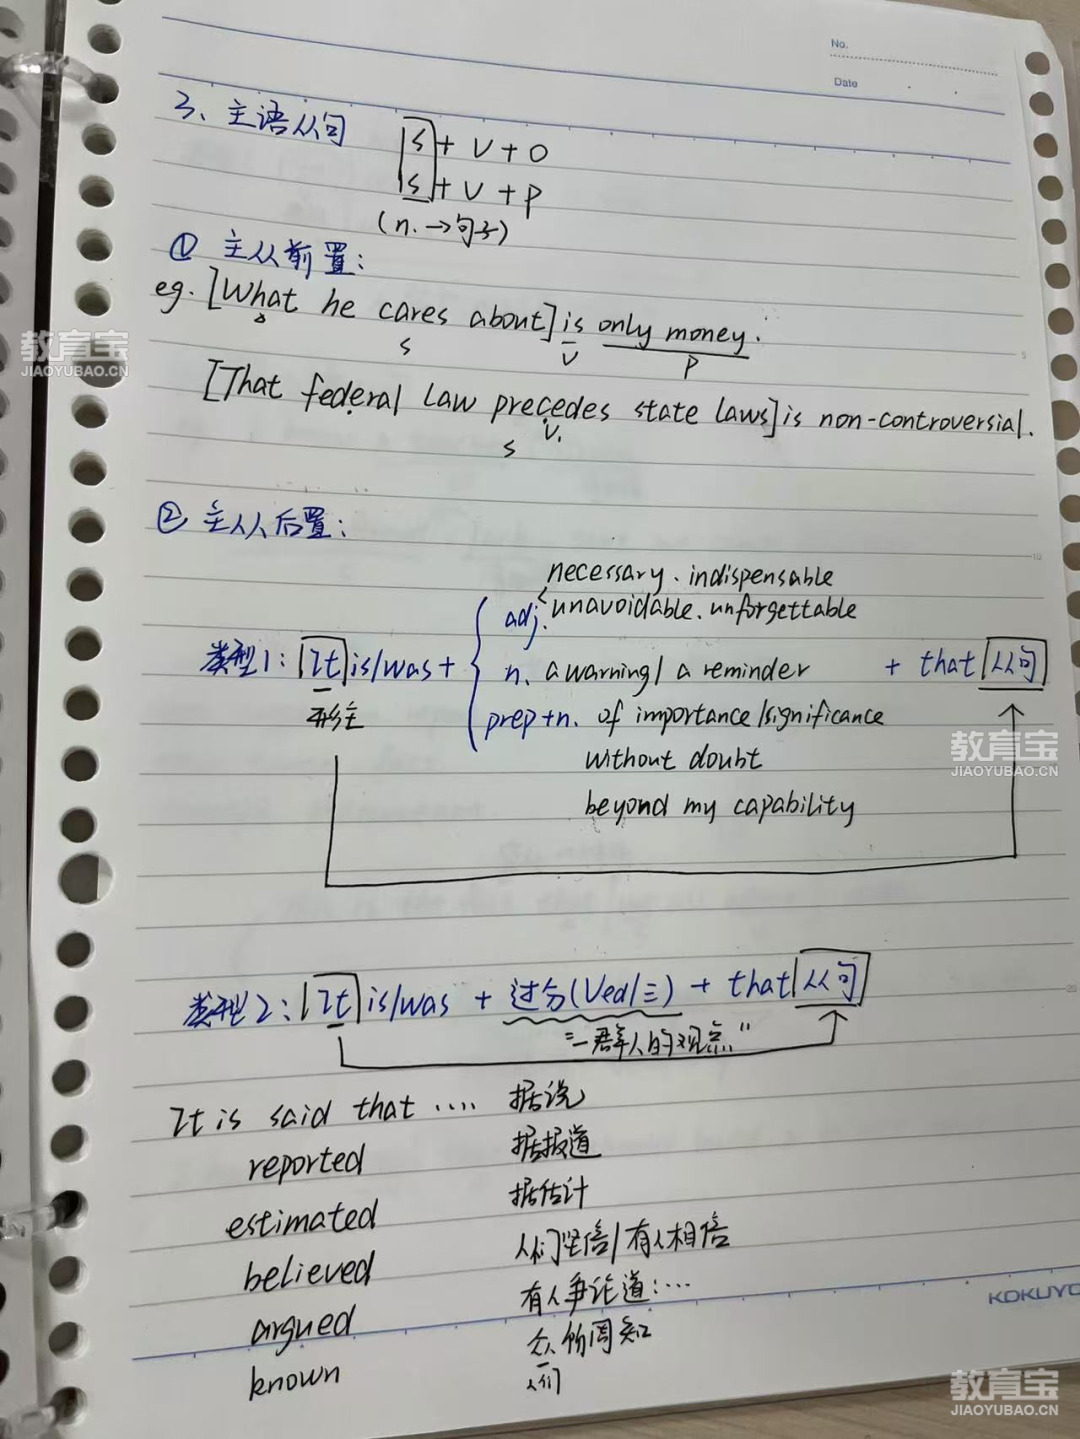 No.
Date
3、主语从句 S + V + O
S + V + P
(n. → 句子)
① 主从前置：
eg. [What he cares about] is only money.
S V P
[That federal law precedes state laws] is non-controversial.
V.
S
② 主从后置：
necessary . indispensable
adj. < unavoidable . unforgettable
类型1: It is/was + { n. a warning / a reminder + that 从句
形主 prep+n. of importance/significance
without doubt
beyond my capability
类型2: It is/was + 过分(Ved/三) + that 从句
"一群人的观点"
It is said that .... 据说
reported 据报道
estimated 据估计
believed 人们坚信/有人相信
argued 有人争论道：...
known 众所周知
人们
KOKUYO
教育宝
JIAOYUBAO.CN
教育宝
JIAOYUBAO.CN
教育宝
JIAOYUBAO.CN